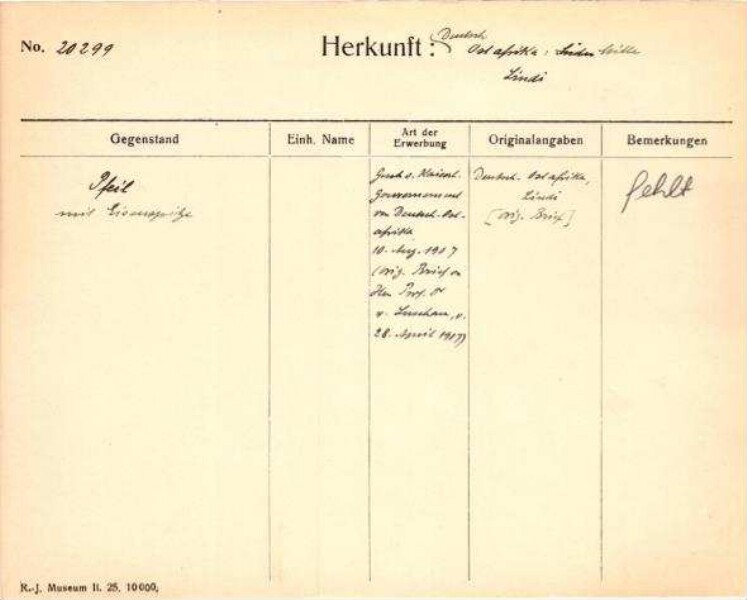 No. 20299
Herkunft: Deutsch
Ostafrika:
Lindi
Gegenstand
Einh. Name
Art der
Erwerbung
Originalangaben
Bemerkungen
Pfeil
mit Eisenspitze
Gesch. v. Kaiserl.
Gouvernement
von Deutsch-Ost-
afrika
10. Aug. 1907
(orig. Brief an
Hrn Prof. Dr
v. Luschan, v.
28. April 1907)
Deutsch-Ostafrika,
Lindi
[orig. Brief]
fehlt
R.-J. Museum II. 25. 10000.